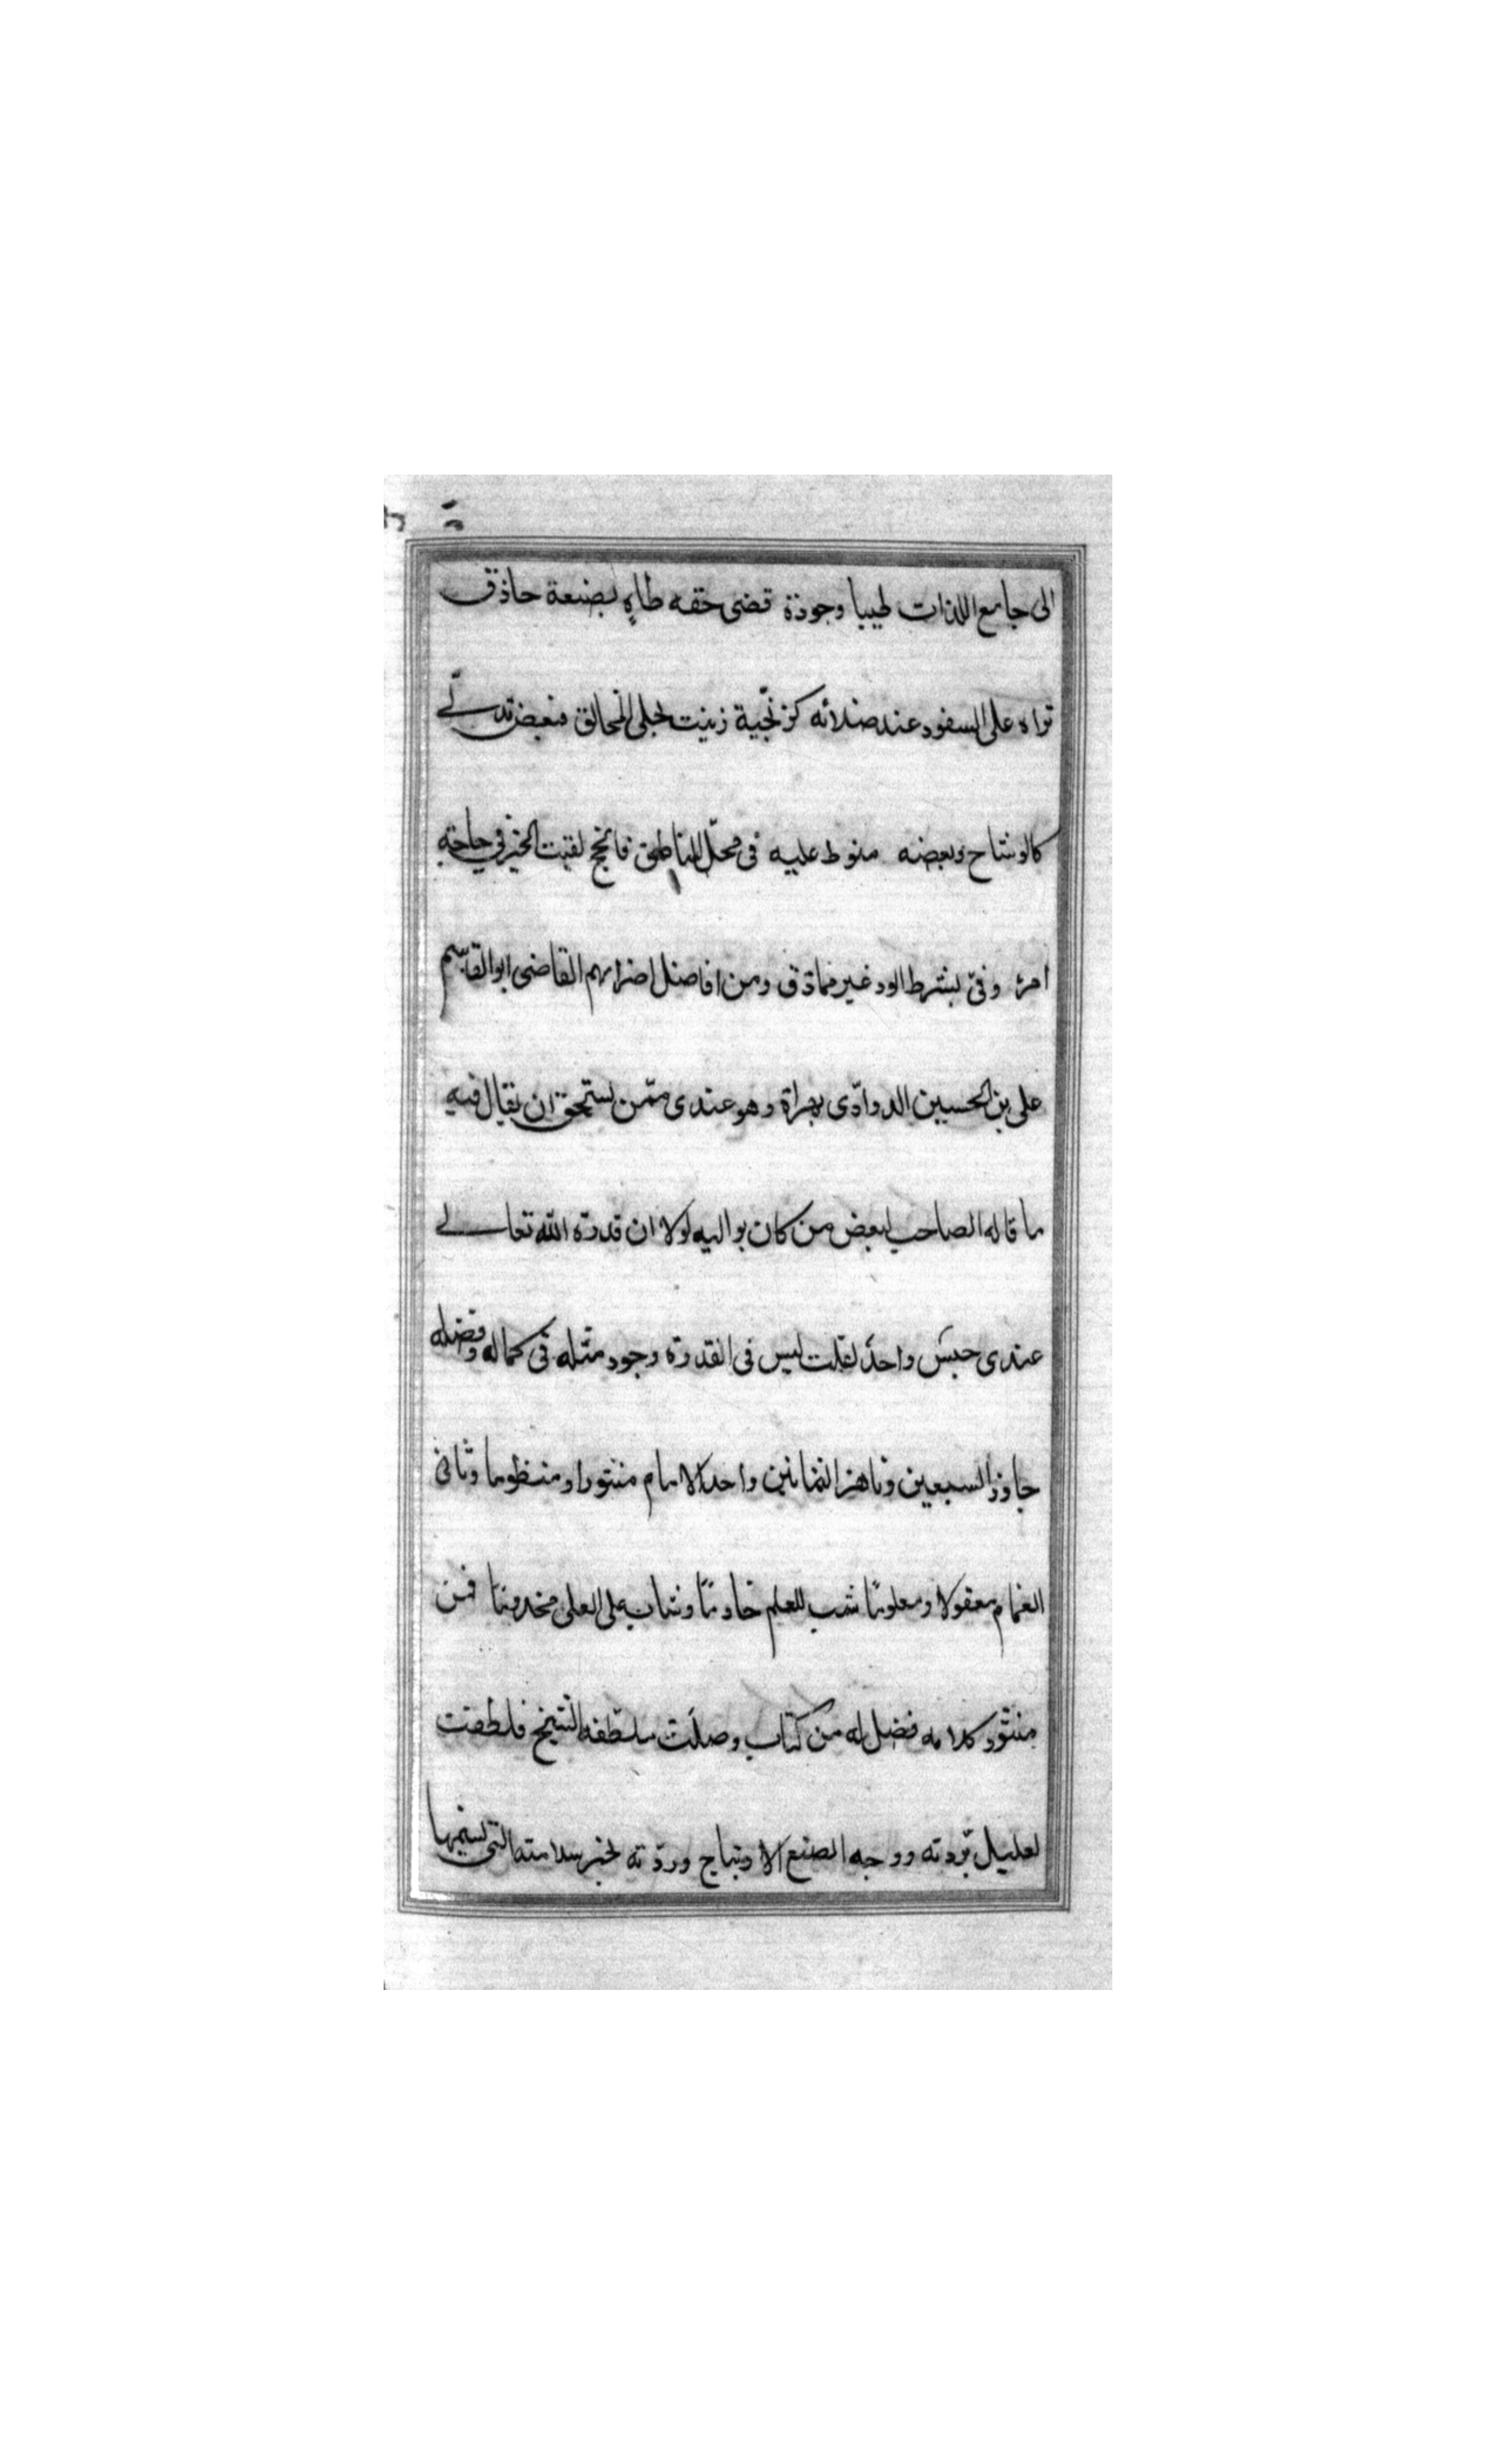 الى جامع اللذات طيبا وجودة قضى حقه طاهٍ بصنعة حاذق
تراه على السفود عند صلائه كزنجّية زينت بحلى المخانق فبعض تدلّى
كالوشاح وبعضه منوط عليه فى محلّ المناطق فانجح لقيت الخير فى حاجة
امرئ وفىّ بشرط الود غير مماذق ومن افاضل اضرابهم القاضى ابو القاسم
على بن الحسين الدواوّدى بهراة وهو عندى ممّن يستحق ان يقال فيه
ما قاله الصاحب لبعض من كان يواليه لولا ان قدرة الله تعالى
عندى جنس واحد لقلت ليس فى القدرة وجود مثله فى كماله وفضله
جاوز السبعين وناهز الثمانين واحد الامام منثورا ومنظوما وثانى
الغمام معقولا ومعلومًا شب للعلم خادمًا وشاب على العلى مخدومًا فمن
منثور كلامه فصل له من كتاب وصلت ملطّفة الشيخ فلطفت
لعليل برّدته ووجه الصنع الاوتباج وردّته بخبر سلامته التى